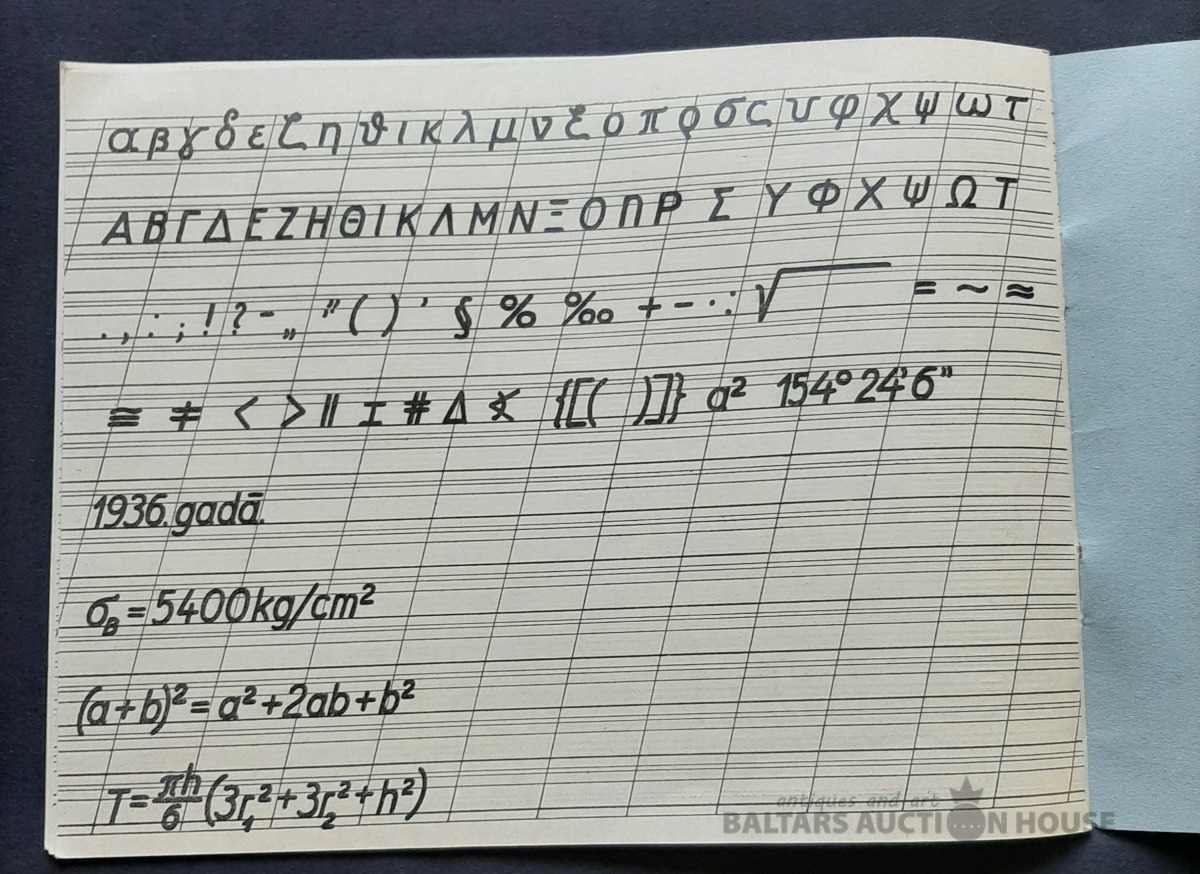 α β γ δ ε ζ η ϑ ι κ λ μ ν ξ ο π ρ σ ς υ φ χ ψ ω τ
Α Β Γ Δ Ε Ζ Η Θ Ι Κ Λ Μ Ν Ξ Ο Π Ρ Σ Υ Φ Χ Ψ Ω Τ
. , : ; ! ? - „ ” ( ) ’ § % ‰ + − · : √ = ~ ≈
≅ ≠ < > || ⌶ # Δ ∢ {[( )]} a² 154° 24' 6"
1936. gadā.
σ_B = 5400 kg/cm²
(a+b)² = a² + 2ab + b²
T = πh/6 (3r₁² + 3r₂² + h²)
antiques and art
BALTARS AUCTION HOUSE